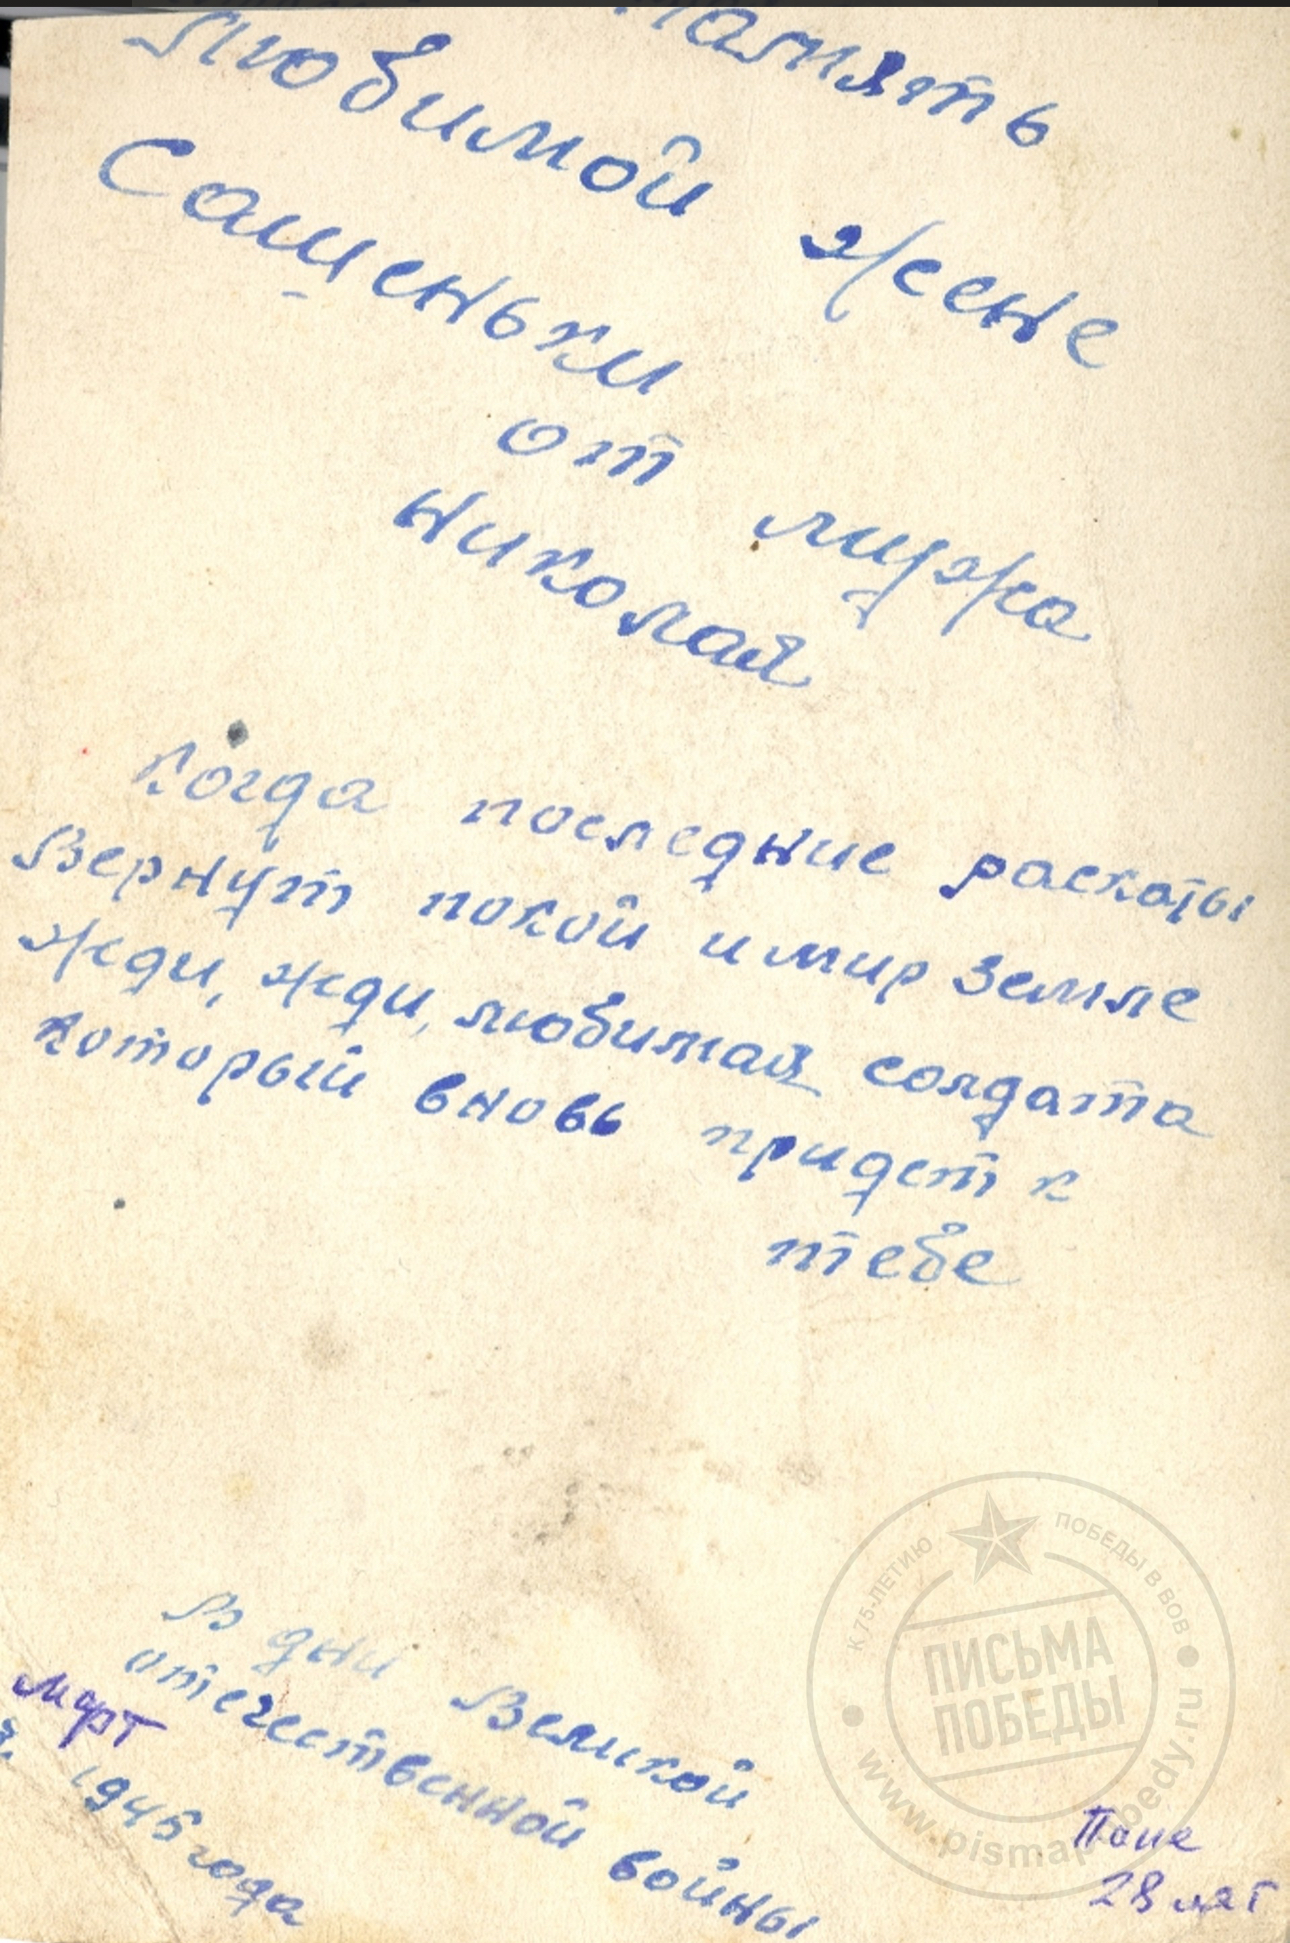 Память
любимой жене
Сашеньки
от мужа
Николая
Когда последние раскаты
Вернут покой и мир Земле
жди, жди, любимая солдата
который вновь придет к
тебе
В дни Великой
отечественной войны
март
1945 года
Папе
28 лет
К 75-ЛЕТИЮ ПОБЕДЫ В ВОВ
ПИСЬМА
ПОБЕДЫ
www.pismapobedy.ru